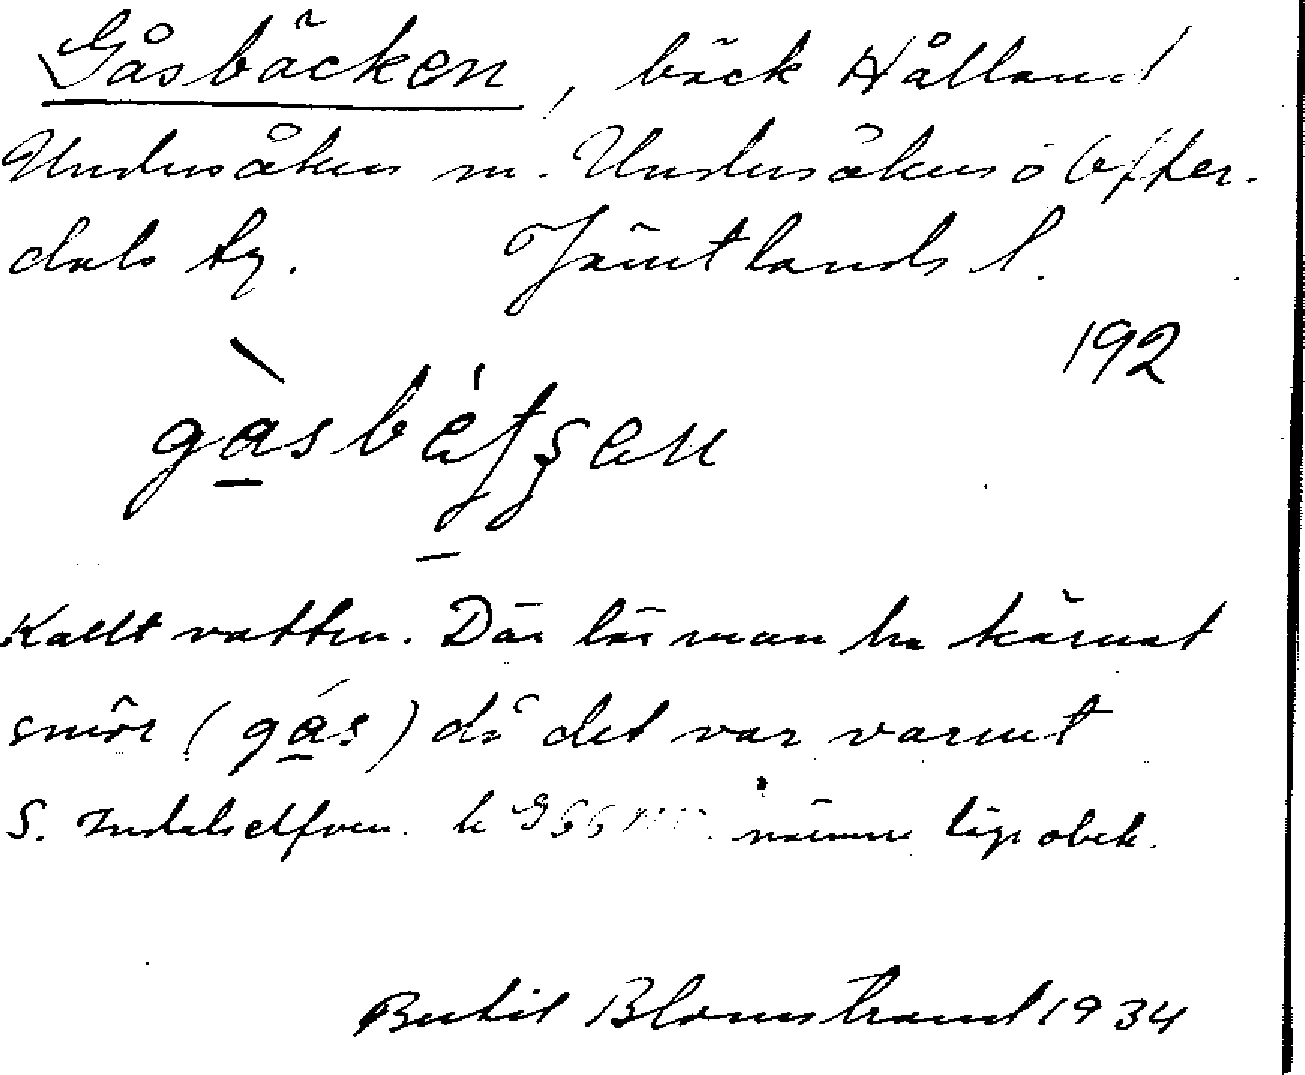 Gåsbäcken, bäck Hålland
Undersåkers sn. Undersåkers o Offer-
dals tg. Jämtlands l.
192
gàsbétʃen
Kallt vatten. Där lär man ha kärnat
smör (gás) då det var varmt
S. Indalselfven. h nämre läge obek.
Bertil Blomstrand 1934